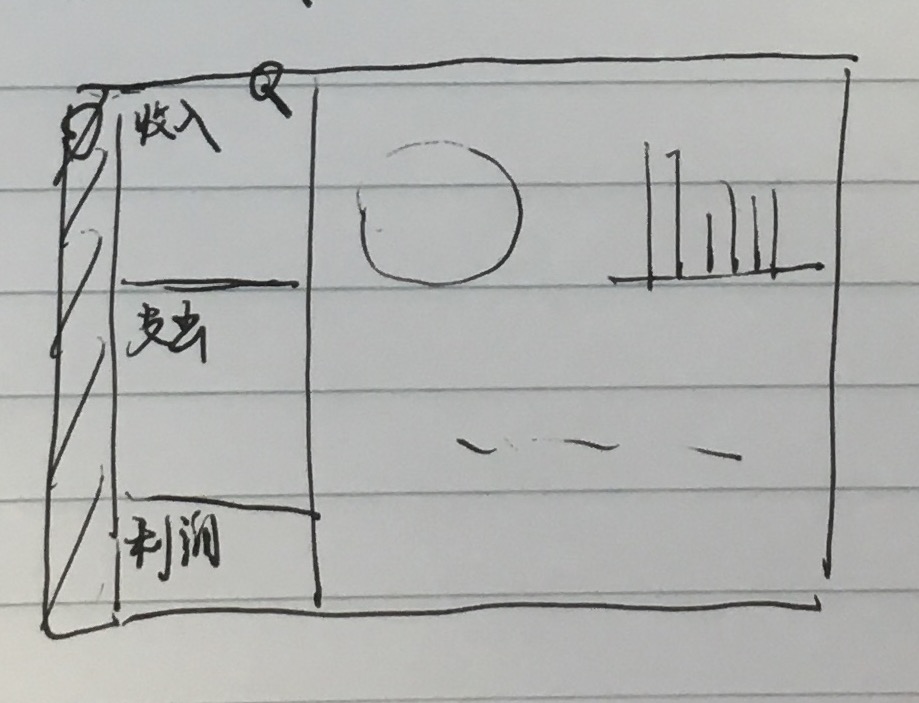 收入
支出
利润